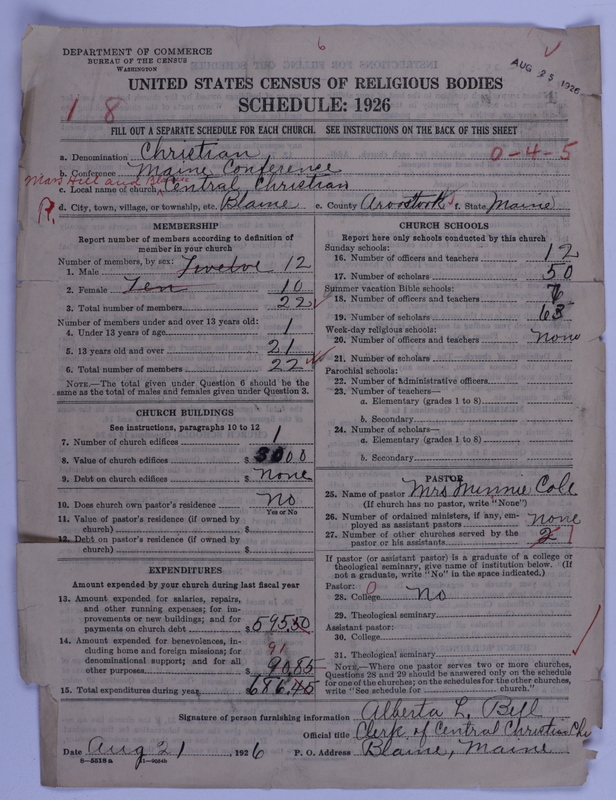 DEPARTMENT OF COMMERCE
BUREAU OF THE CENSUS
WASHINGTON
AUG 25 1926
UNITED STATES CENSUS OF RELIGIOUS BODIES
SCHEDULE: 1926
1 8
FILL OUT A SEPARATE SCHEDULE FOR EACH CHURCH. SEE INSTRUCTIONS ON THE BACK OF THIS SHEET
a. Denomination Christian 0-4-5
b. Conference Maine Conference
Mars Hill and Blaine
c. Local name of church Central Christian
R. d. City, town, village, or township, etc. Blaine e. County Aroostook f. State Maine
MEMBERSHIP
Report number of members according to definition of member in your church
Number of members, by sex:
1. Male Twelve 12
2. Female Ten 10
3. Total number of members 22
Number of members under and over 13 years old:
4. Under 13 years of age 1
5. 13 years old and over 21
6. Total number of members 22
NOTE.—The total given under Question 6 should be the
same as the total of males and females given under Question 3.
CHURCH BUILDINGS
See instructions, paragraphs 10 to 12
7. Number of church edifices 1
8. Value of church edifices $ 3000
9. Debt on church edifices $ None
10. Does church own pastor's residence No
Yes or No
11. Value of pastor's residence (if owned by
church) $
12. Debt on pastor's residence (if owned by
church) $
EXPENDITURES
Amount expended by your church during last fiscal year
13. Amount expended for salaries, repairs,
and other running expenses; for im-
provements or new buildings; and for
payments on church debt $ 595.50
14. Amount expended for benevolences, in-
cluding home and foreign missions; for
denominational support; and for all 91
other purposes $ 90.85
15. Total expenditures during year 686.45
CHURCH SCHOOLS
Report here only schools conducted by this church
Sunday schools:
16. Number of officers and teachers 12
17. Number of scholars 50
Summer vacation Bible schools:
18. Number of officers and teachers
19. Number of scholars 63
Week-day religious schools:
20. Number of officers and teachers none
21. Number of scholars
Parochial schools:
22. Number of administrative officers
23. Number of teachers—
a. Elementary (grades 1 to 8)
b. Secondary
24. Number of scholars—
a. Elementary (grades 1 to 8)
b. Secondary
PASTOR
25. Name of pastor Mrs Minnie Cole
(If church has no pastor, write "None")
26. Number of ordained ministers, if any, em-
ployed as assistant pastors none
27. Number of other churches served by the
pastor or his assistants 2 1
If pastor (or assistant pastor) is a graduate of a college or
theological seminary, give name of institution below. (If
not a graduate, write "No" in the space indicated.)
Pastor:
28. College No
29. Theological seminary
Assistant pastor:
30. College
31. Theological seminary
NOTE.—Where one pastor serves two or more churches,
Questions 28 and 29 should be answered only on the schedule
for one of the churches; on the schedules for the other churches,
write "See schedule for church."
Signature of person furnishing information Alberta L. Bell
Official title Clerk of Central Christian Ch
Date Aug 21, 1926 P. O. Address Blaine, Maine
8—5318a 11—9024b